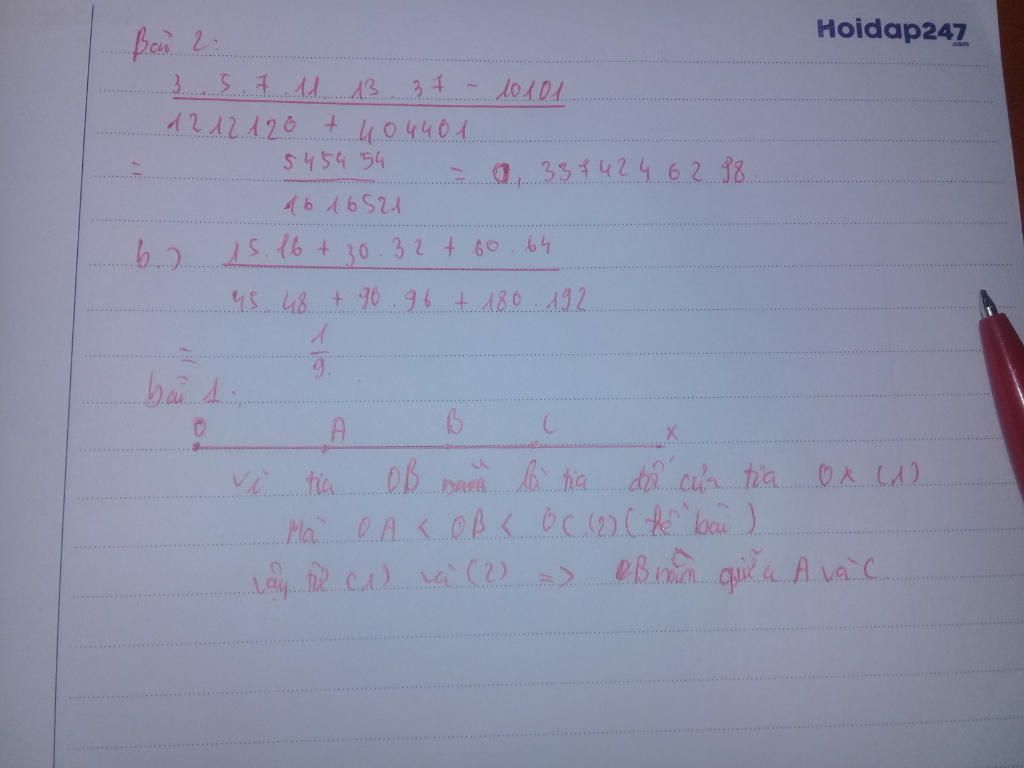 Hoidap247
.com
Bài 2:
3 . 5 . 7 . 11 . 13 . 37 - 10101
1212120 + 404401
= 545454 = 0, 33742462 98
1616521
b.) 15.16 + 30.32 + 60.64
45.48 + 90.96 + 180.192
= 1
9.
bài 1:
O A B C x
Vì tia OB là tia đối của tia Ox (1)
Mà OA < OB < OC (2) ( đề bài )
Vậy từ (1) và (2) => B nằm giữa A và C